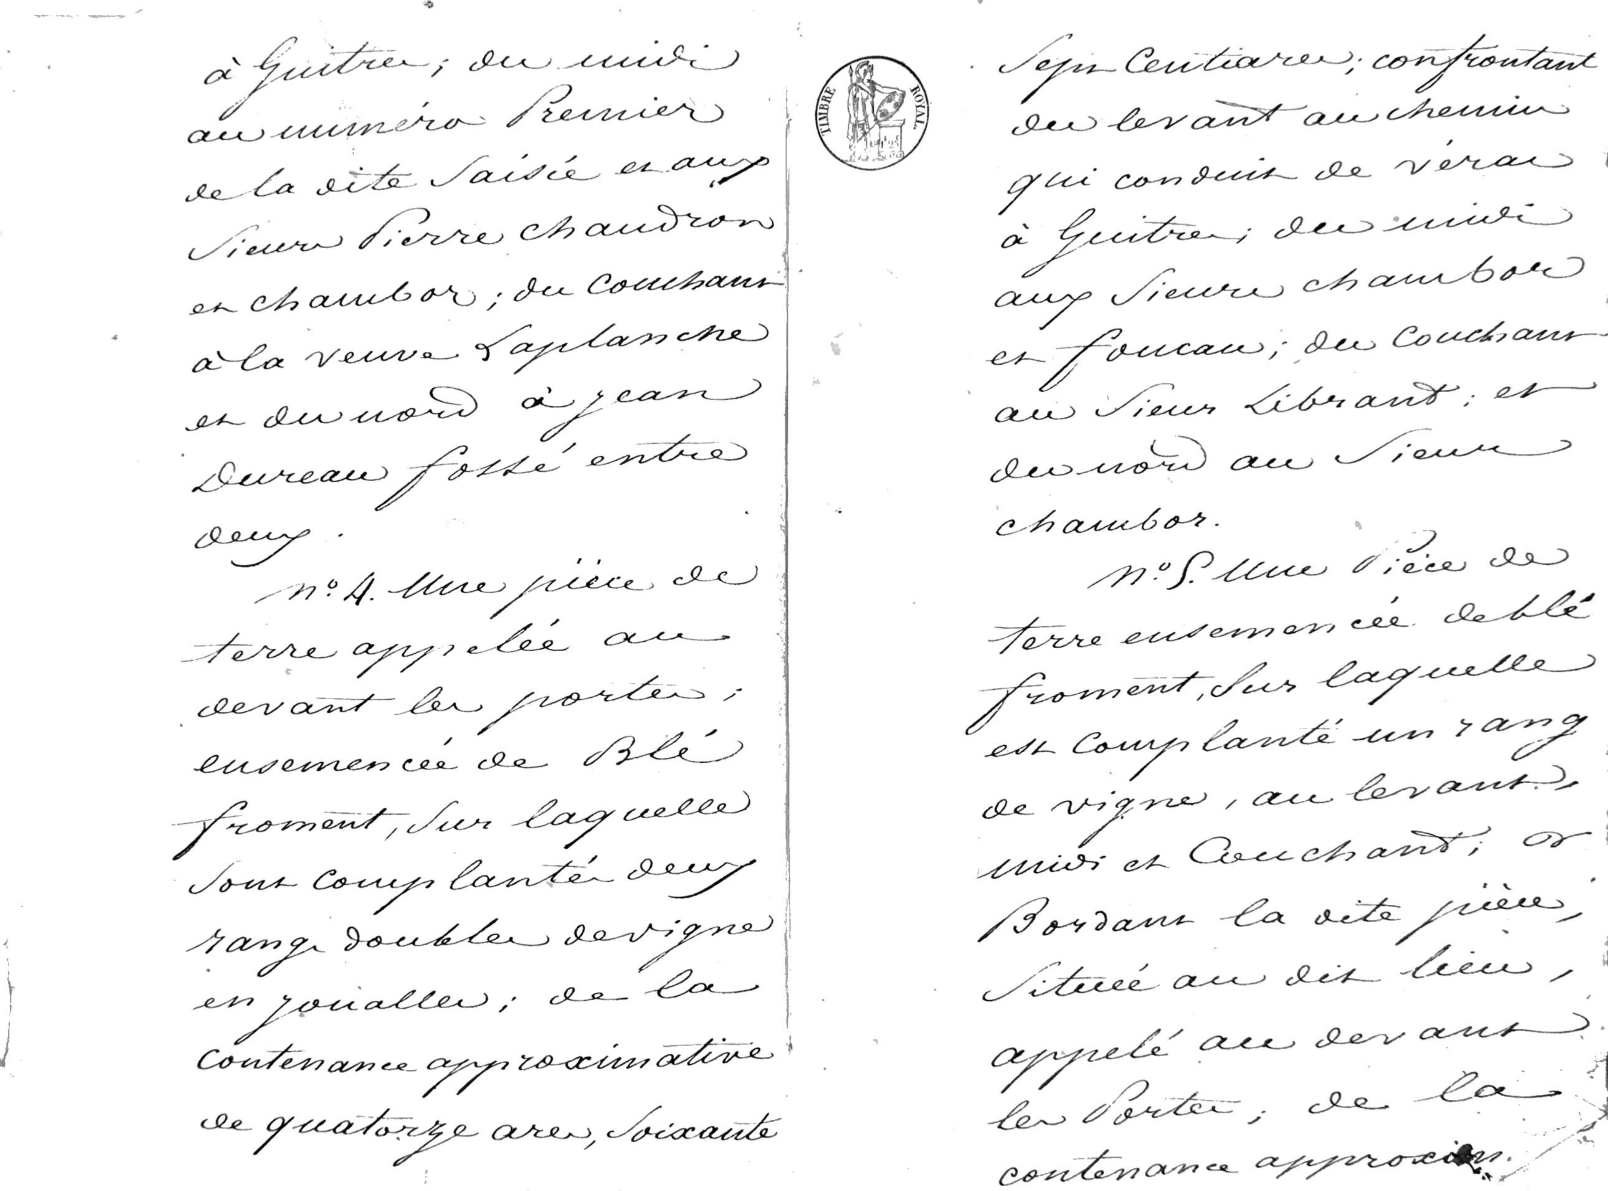 à Guitres ; du midi
au numéro Premier
de la dite Saisie et aux
Sieurs Pierre chaudron
et chambor ; du Couchant
à la veuve Laplanche
et du nord à jean
Dureau fossé entre
deux .
n.° 4. Une pièce de
terre appelée au
devant les portes ;
ensemencée de Blé
froment, Sur laquelle
Sont complantés deux
rangs doubles de vigne
en joualles ; de la
Contenance approximative
de quatorze ares, Soixante
TIMBRE ROYAL
Sept Centiares ; confrontant
du levant au chemin
qui conduit de vérac
à Guitres ; du midi
aux Sieurs chambor
et foucau ; du Couchant
au Sieur Librant ; et
du nord au Sieur
chambor.
N.° 5. Une Pièce de
terre ensemencée de blé
froment, Sur laquelle
est Complanté un rang
de vigne, au levant,
midi et Couchant ; et
Bordant la dite pièce,
Située au dit lieu,
appelé au devant
les Portes ; de la
contenance approxim.